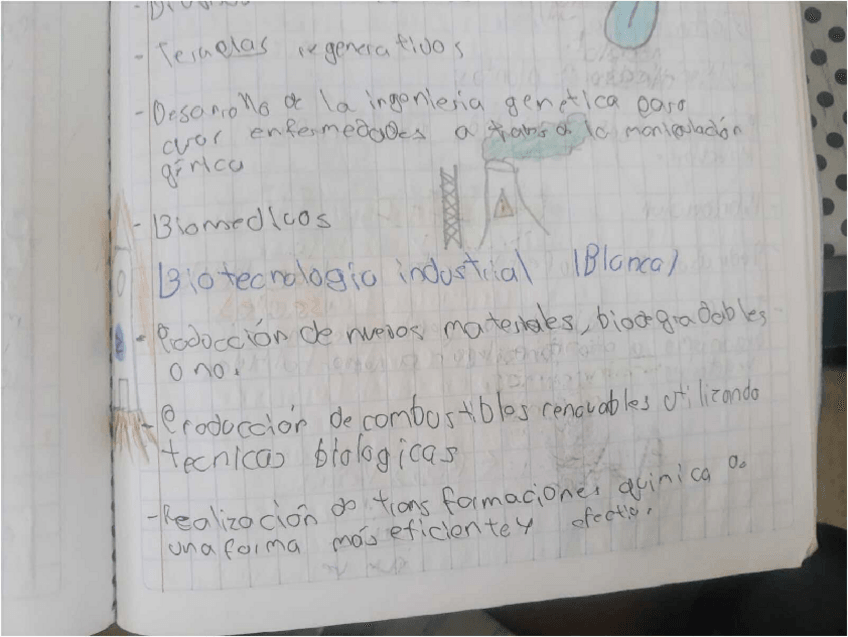 - Terapias regenerativos
- Desarrollo de la ingenieria genetica para
curar enfermedades a través de la manipulación
génica
- Biomedicos
Biotecnologia industrial (Blanca)
- Producción de nuevos materiales, biodegradables
o no.
- Producción de combustibles renovables utilizando
tecnicas biologicas
- Realización de transformaciones quimica de
una forma más eficiente y efectiva.